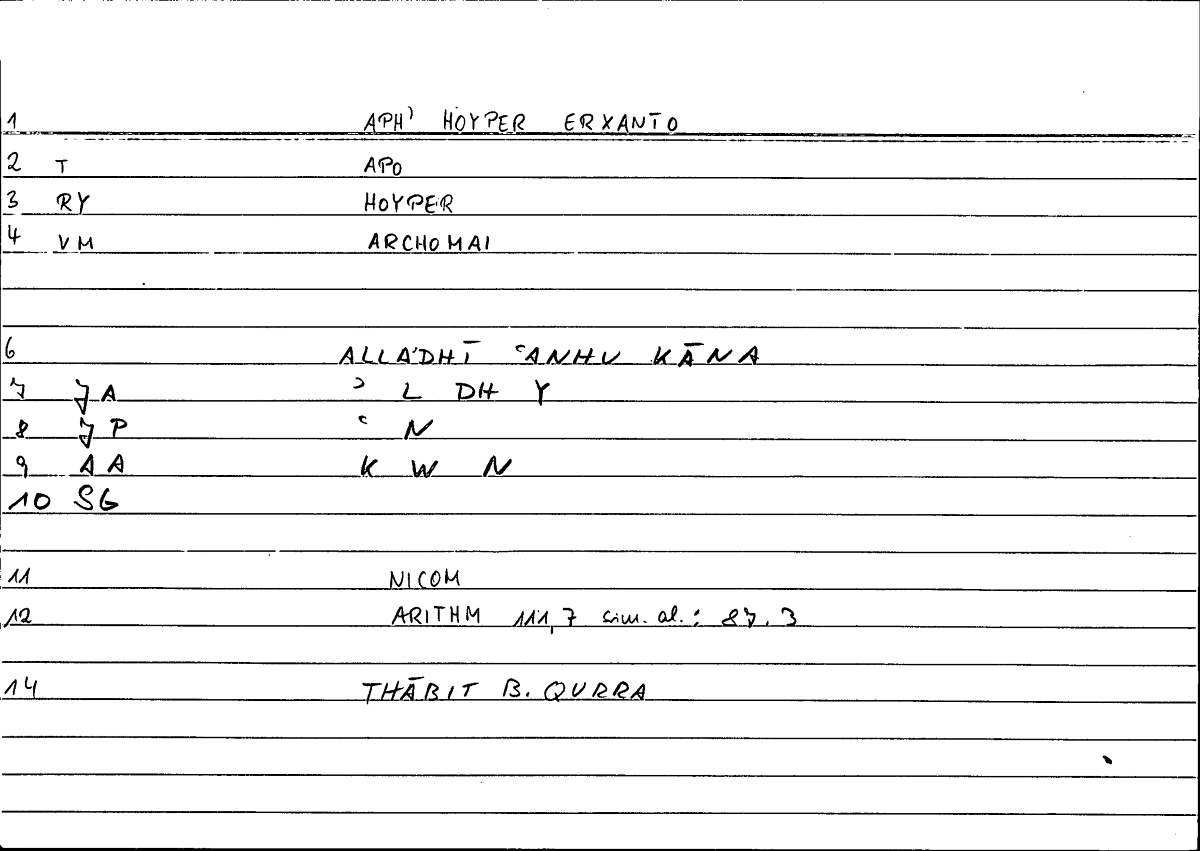 1 APH' HOYPER ERXANTO
2 T APO
3 RY HOYPER
4 VM ARCHOMAI
6 ALLADHĪ ʿANHU KĀNA
7 JA ʾ L DH Y
8 JP ʿ N
9 AA K W N
10 SG
11 NICOM
12 ARITHM 111,7 sim. al.: 87.3
14 THĀBIT B. QURRA